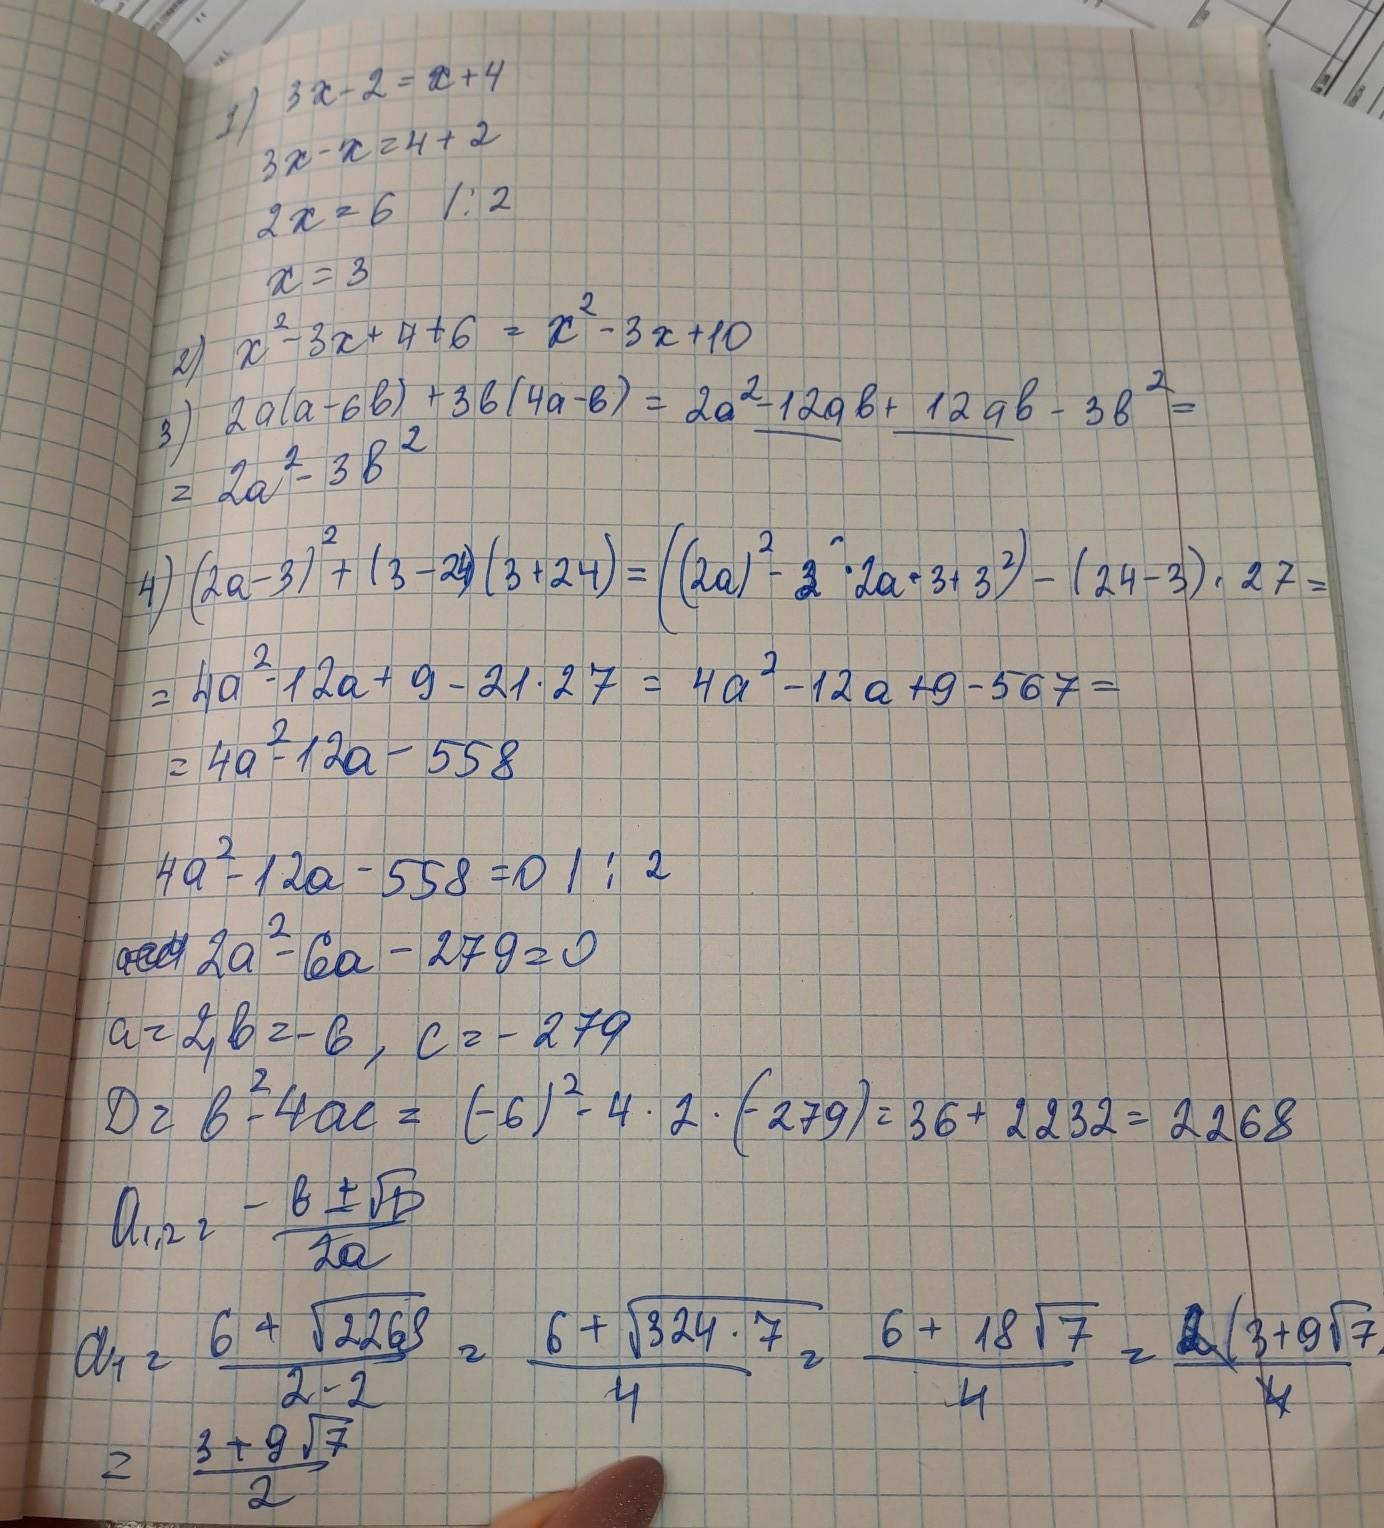 1) 3x-2=x+4
3x-x=4+2
2x=6 /:2
x=3
2) x²-3x+4+6 = x²-3x+10
3) 2a(a-6b)+3b(4a-b) = 2a²-12ab+12ab-3b² =
= 2a²-3b²
4) (2a-3)²+(3-24)(3+24)=((2a)²-2·2a·3+3²)-(24-3)·27=
= 4a²-12a+9-21·27 = 4a²-12a+9-567=
= 4a²-12a-558
4a²-12a-558=0 /:2
2a²-6a-279=0
a=2, b=-6, c=-279
D= b²-4ac = (-6)²-4·2·(-279)=36+2232=2268
a₁,₂= -b±√D/2a
a₁= 6+√2268/2-2 = 6+√324·7/4 = 6+18√7/4 = 2(3+9√7)/4
= 3+9√7/2